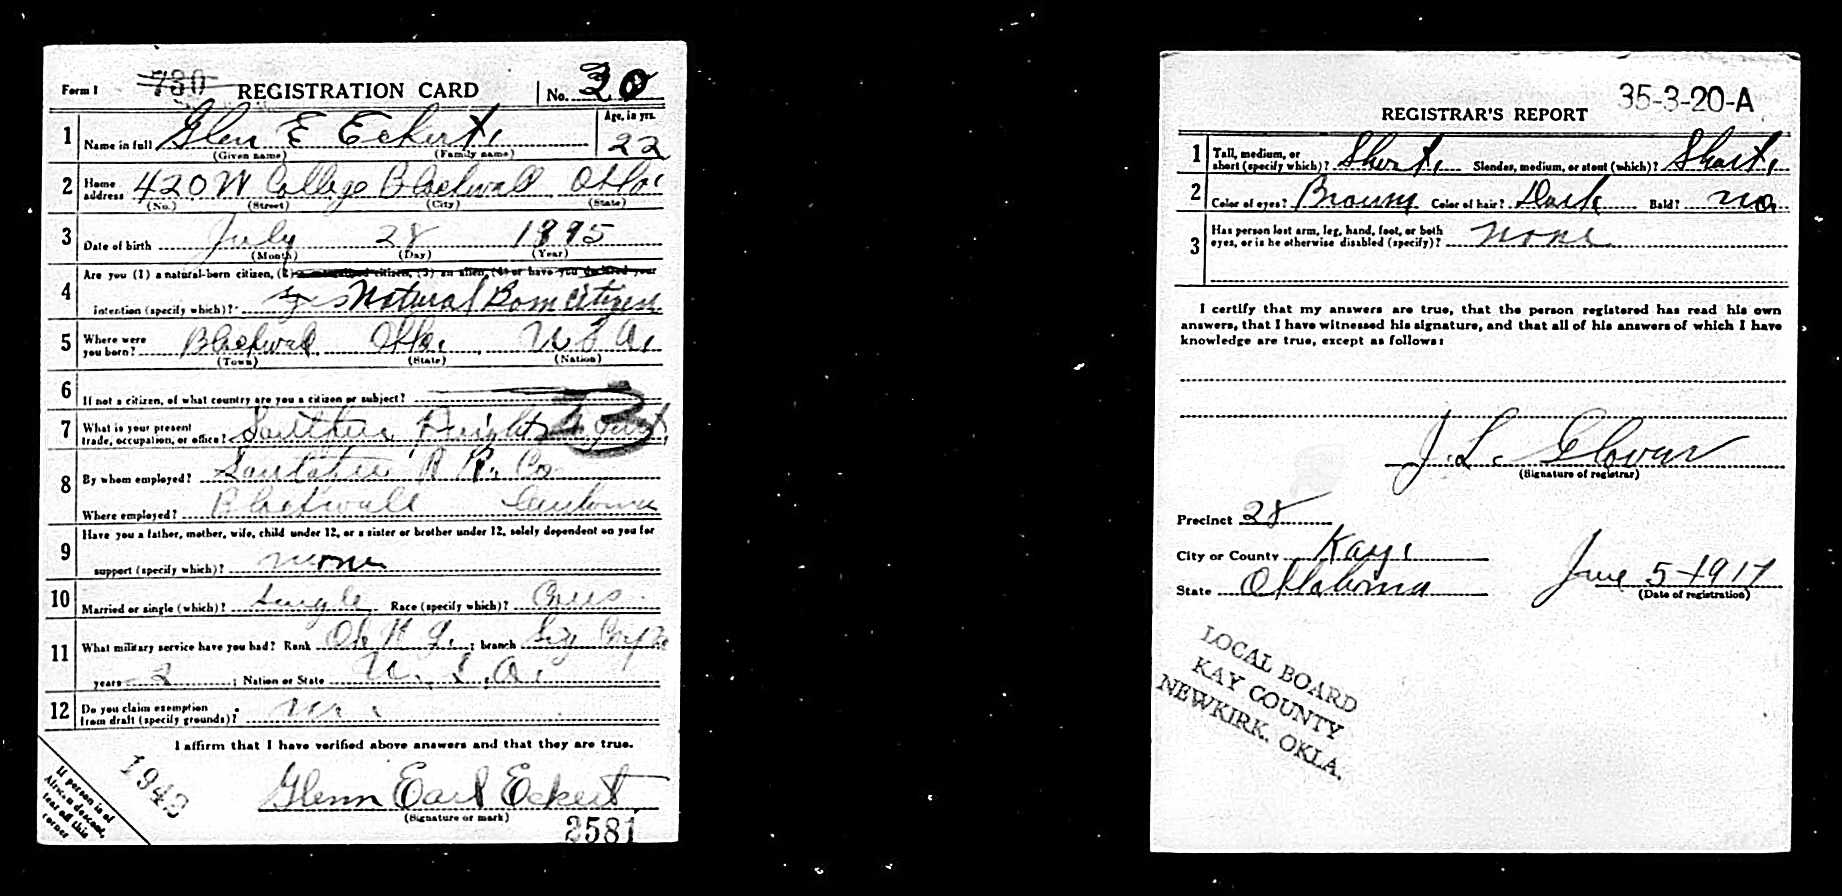 Form 1 780 REGISTRATION CARD No. 30
1 Name in full Glen E Eckert, Age, in yrs. 22
(Given name) (Family name)
2 Home address 420 W College Blackwell Okla.
(No.) (Street) (City) (State)
3 Date of birth July 28 1895
(Month) (Day) (Year)
4 Are you (1) a natural-born citizen, (2) a naturalized citizen, (3) an alien, (4) or have you declared your
intention (specify which)? Natural Born citizen
5 Where were you born? Blackwell Okla. U. S. A.
(Town) (State) (Nation)
6 If not a citizen, of what country are you a citizen or subject?
7 What is your present trade, occupation, or office?
8 By whom employed? R. R. Co
Where employed? Blackwell
9 Have you a father, mother, wife, child under 12, or a sister or brother under 12, solely dependent on you for
support (specify which)? none
10 Married or single (which)? single Race (specify which)?
11 What military service have you had? Rank ; branch Sig
years 2 ; Nation or State U. S. A.
12 Do you claim exemption from draft (specify grounds)?
I affirm that I have verified above answers and that they are true.
Glenn Earl Eckert
(Signature or mark)
2581
1943
If person is of
African descent,
tear off this
corner
35-3-20-A
REGISTRAR'S REPORT
1 Tall, medium, or short (specify which)? Short, Slender, medium, or stout (which)?
2 Color of eyes? Brown Color of hair? Dark Bald? no
3 Has person lost arm, leg, hand, foot, or both eyes, or is he otherwise disabled (specify)? none
I certify that my answers are true, that the person registered has read his own
answers, that I have witnessed his signature, and that all of his answers of which I have
knowledge are true, except as follows:
J. L. Glover
(Signature of registrar)
Precinct 28
City or County Kay
State Oklahoma June 5-1917
(Date of registration)
LOCAL BOARD
KAY COUNTY
NEWKIRK, OKLA.